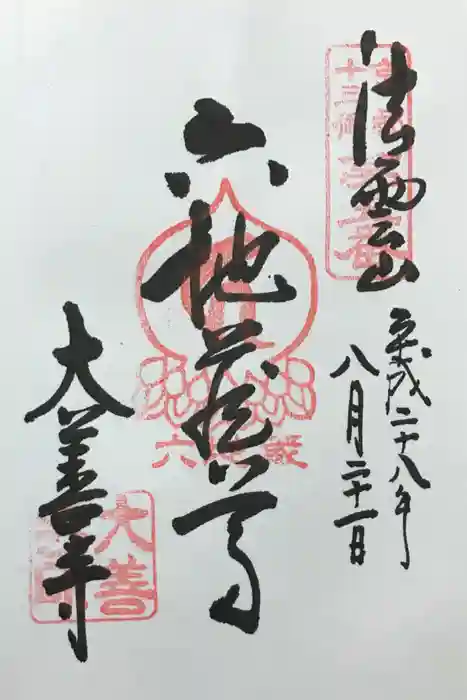 法雲山
平成二十八年
八月二十一日
六地蔵尊
大善寺
十三佛
第五番
六地蔵
大善